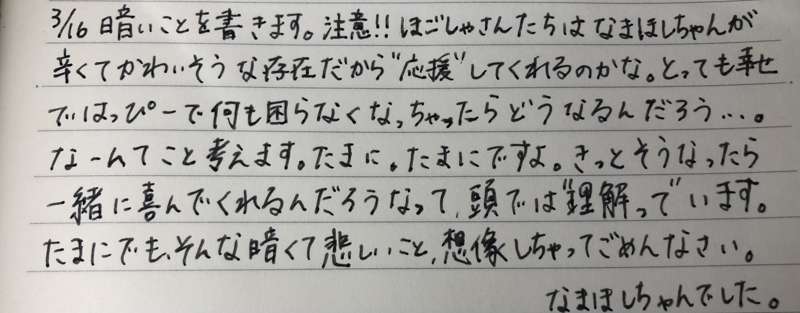 3/16 暗いことを書きます。注意!! ほごしゃさんたちはなまほしちゃんが
辛くてかわいそうな存在だから"応援"してくれるのかな。とっても幸せ
ではっぴーで何も困らなくなっちゃったらどうなるんだろう…。
なーんてこと考えます。たまに。たまにですよ。きっとそうなったら
一緒に喜んでくれるんだろうなって、頭では"理解っで"います。
たまにでも、そんな暗くて悲しいこと、想像しちゃってごめんなさい。
なまほしちゃんでした。